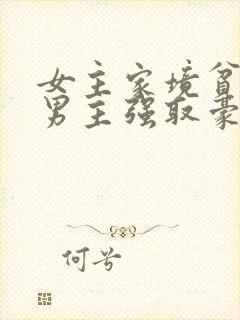 女主家境贫
男主强取豪
何兮